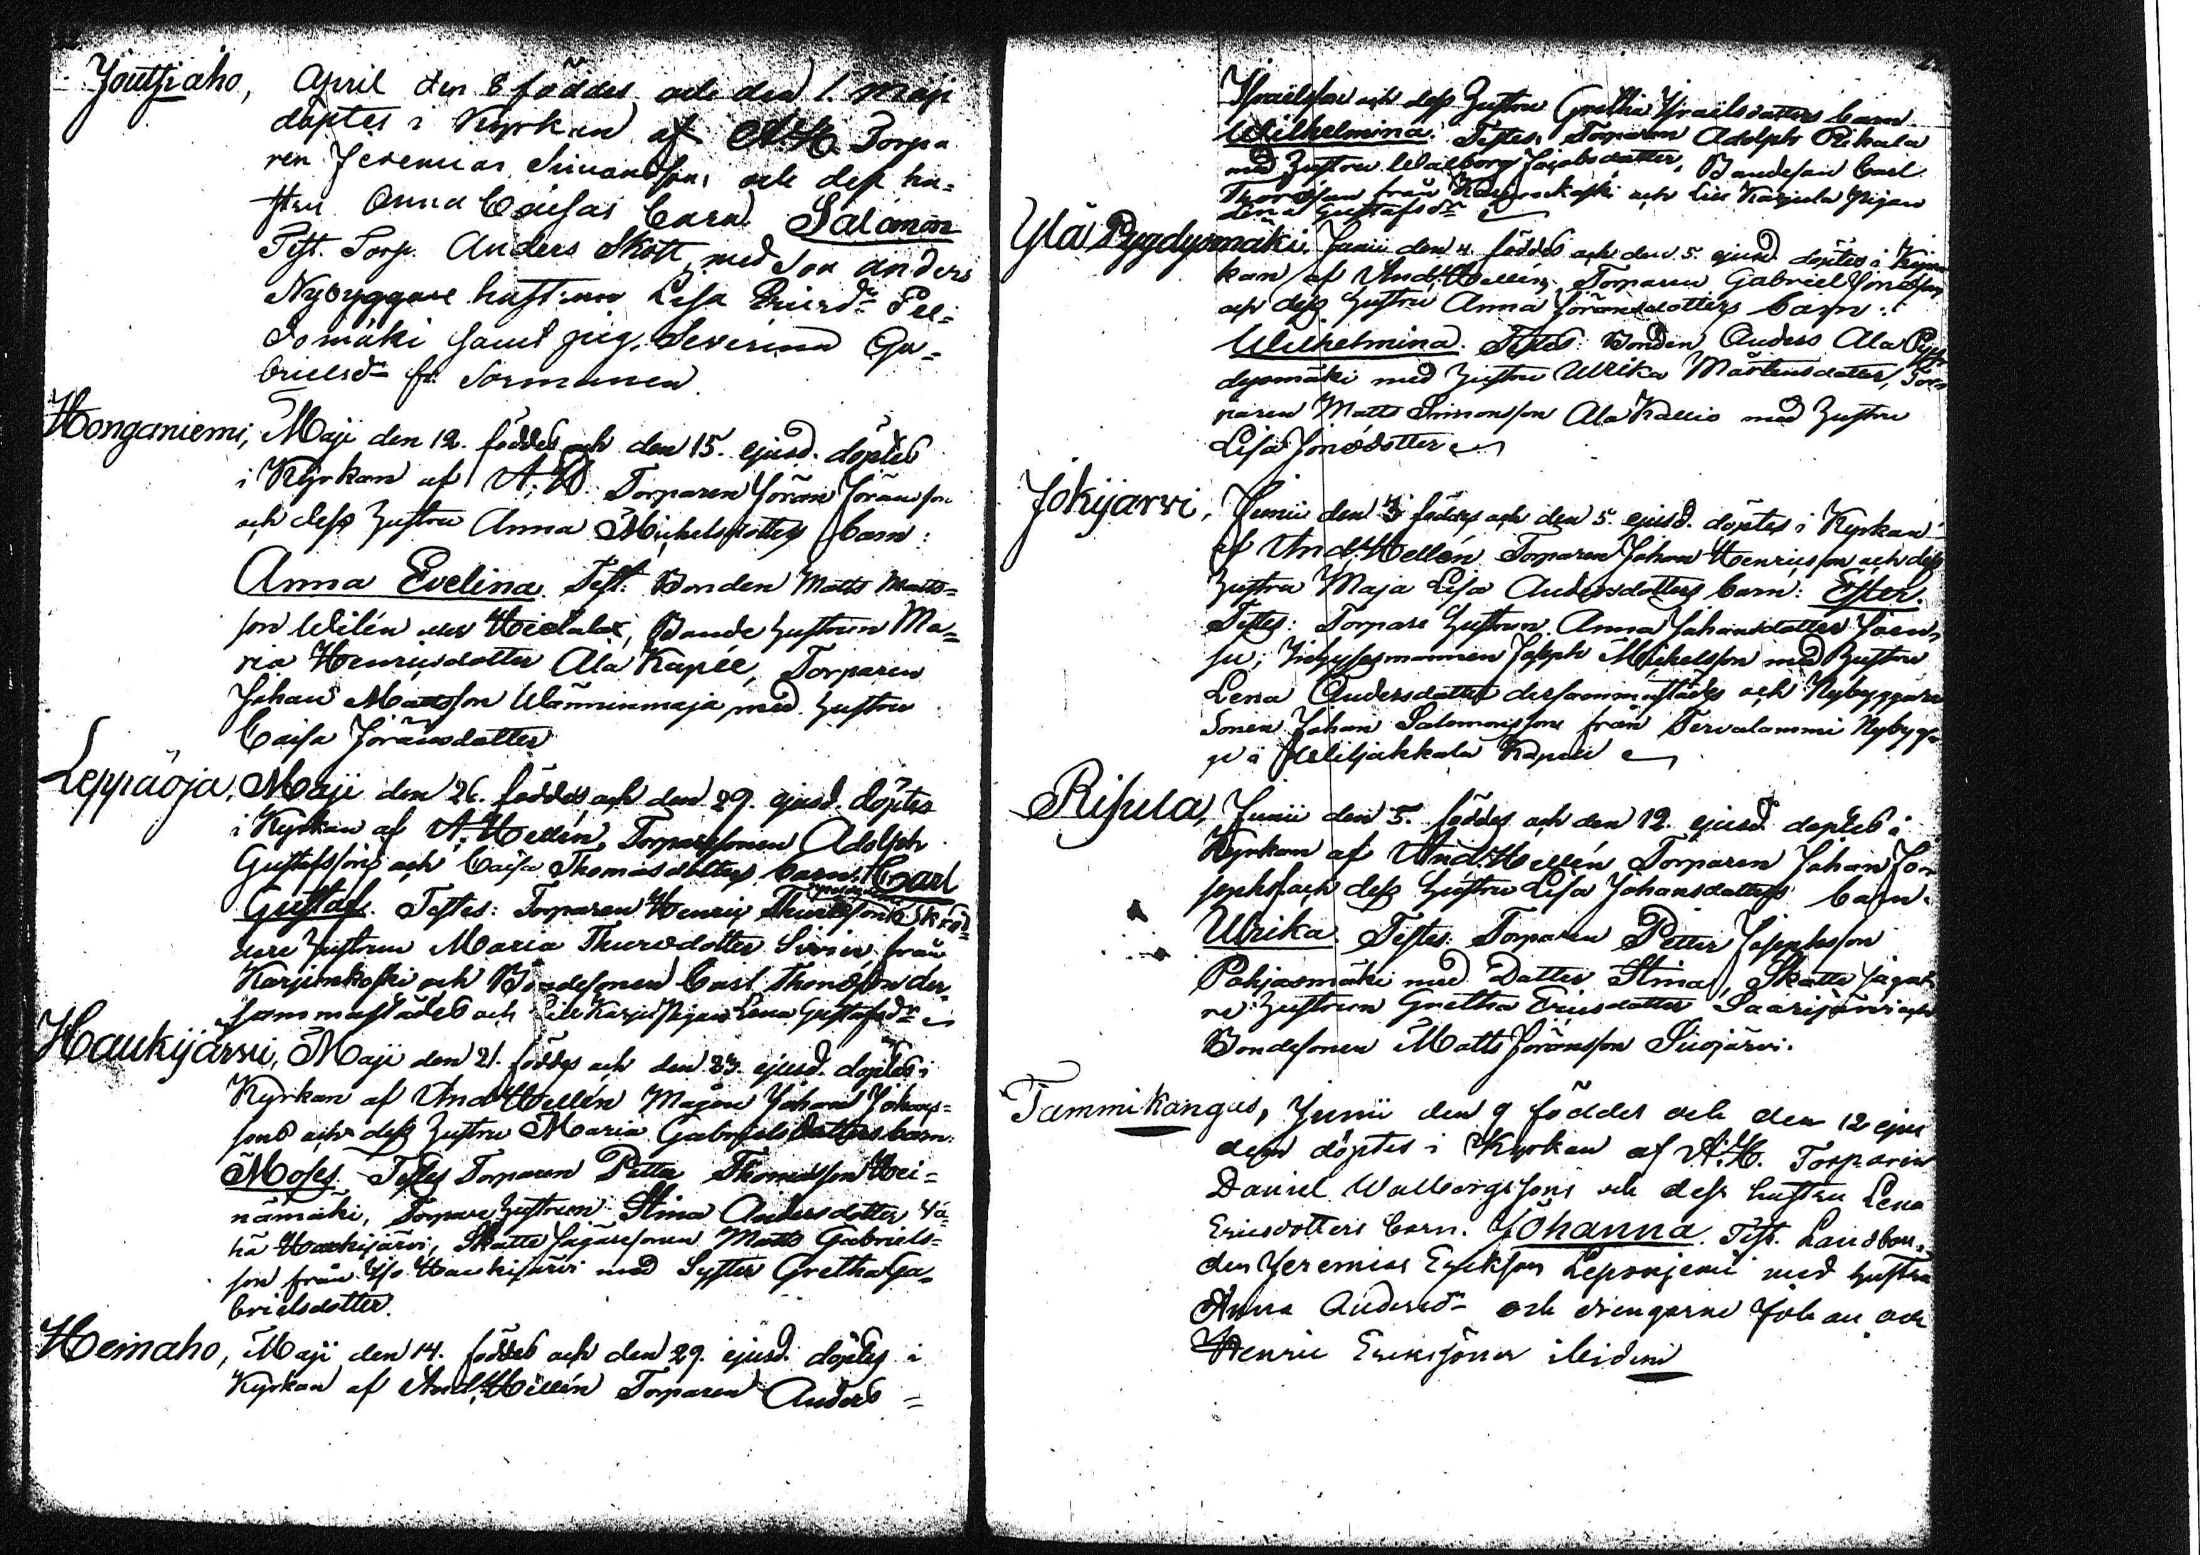 Joutsiaho, April den 8 föddes och den 1. Maji
döptes i Kyrkan af A.H. Torpa
ren Jeremias Simonssons och dess hu=
stru Anna Caisas barn Salomon
Test. Torp. Anders Skött med son Anders
Nybyggare hustrun Lisa Ericsdr Pel=
domäki samt pig. Severina Ga=
brielsdr fr. Sormunen
Honganiemi, Maji den 12. föddes och den 15. ejusd. döptes
i Kyrkan af A.H. Torparen Jöran Jöransson
och dess hustru Anna Michelsdotters barn:
Anna Evelina. Test: Bonden Matts Matts=
son Wilén, Bonde hustrun Ma=
ria Henricsdotter Ala Kapee, Torparen
Johan Matsson Wänninmaja med hustru
Caisa Jöransdotter
Leppäoja, Maji den 26. föddes och den 29. ejusd. döptes
i Kyrkan af A. Hellén, Torparesonen Adolph
Gustafssons och Caisa Thomasdotters barn: Carl
Gustaf. Testes: Torparen Henric Skräd=
dare hustrun Maria Thuresdotter från
Karjenkoski och Bondesonen Carl Thomasson der=
sammastädes och Lill Karju Pigan Lena Gustafsdr
Haukijärvi, Maji den 21. föddes och den 23. ejusd. döptes i
Kyrkan af And. Hellén Mågen Johan Johans=
sons och dess hustru Maria Gabrielsdotters barn:
Moses. Testes Torparen Petter Thomasson Hei=
nämäki, Torpare hustrun Stina Andersdotter Vä=
hä Haukijärvi, Skatte Jägaresonen Matts Gabriels=
son från Iso Haukijärvi med Syster Gretha Ga=
brielsdotter.
Heinaho, Maji den 14. föddes och den 29. ejusd. döptes i
Kyrkan af And. Hellén Torparen Anders =
Israelsson och dess hustru Gretha Israelsdotters barn
Wilhelmina. Testes, Torparen Adolph Rihala
med hustru Walborg Jacobsdotter, Bondeson Carl
Thomasson från Karjenkoski och Lill Karjula Pigan
Lena Gustafsdr
Ylä Pygdysmäki, Junii den 4. föddes och den 5. ejusd. döptes i Kyr
kan af And. Hellén, Torparen Gabriel Jonasson
och dess hustru Anna Jöransdotters barn:
Wilhelmina. Testes: Bonden Anders Ala Pyg
dysmäki med hustru Ulrika Mårtensdotter, Tor=
paren Matts Simonsson Ala Kallio med hustru
Lisa Jonædotter
Jokijärvi, Junii den 3 föddes och den 5. ejusd. döptes i Kyrkan
af And. Hellén Torparen Johan Henricsson och dess
hustru Maja Lisa Andersdotters barn: Ester.
Testes: Torpare hustrun Anna Johansdotter Joen=
su, Inhysesmannen Joseph Michelsson med hustru
Lena Andersdotter dersammastädes och Nybyggare
sonen Johan Salomonsson från Tervalammi Nybyg=
ge i Wiljakkala Kapell
Risula, Junii den 5. föddes och den 12. ejusd. döptes i
Kyrkan af And. Hellén Torparen Johan Jo=
sephs. och dess hustru Lisa Johansdotters barn:
Ulrika. Testes: Torparen Petter Josephsson
Pohjasmäki med Dotter Stina, Skatte Jäga=
re hustrun Gretha Ericsdotter Saarijärvi och
Bondesonen Matts Jöransson Siiojärvi.
Tammikangas, Junii den 9 föddes och den 12 ejus
dem döptes i Kyrkan af A.H. Torparen
Daniel Walborgssons och dess hustru Lena
Ericsdotters barn. Johanna. Test. Landbon=
den Jeremias Ericksson Lepenjemi med hustru
Anna Andersdr och drengarne Johan och
Henric Erikssöner ibidem